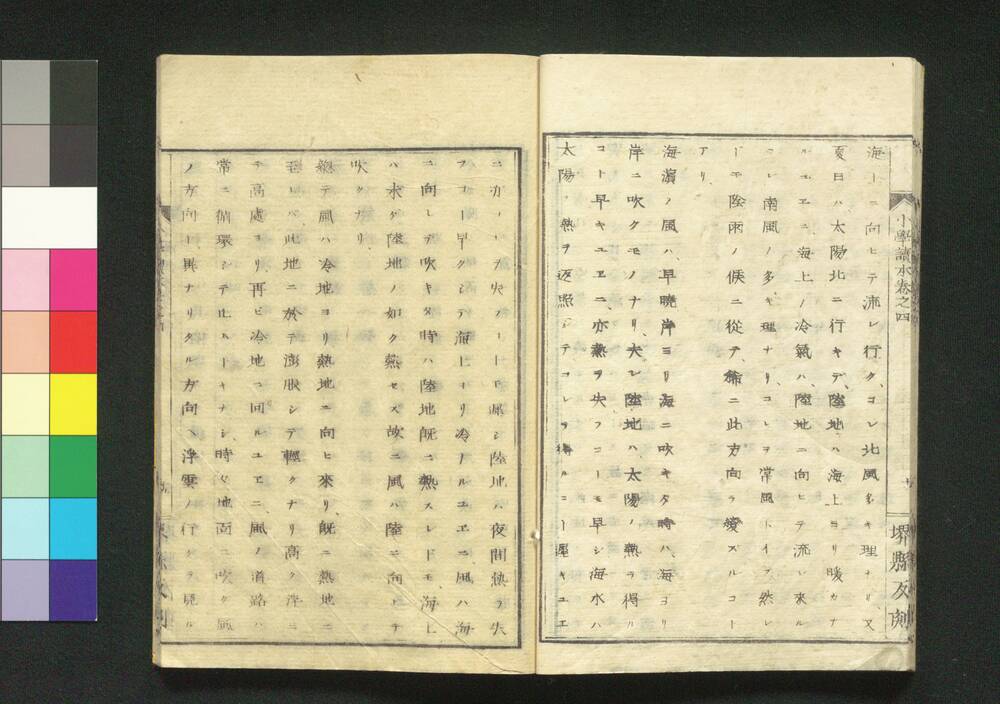 海上ニ向ヒテ沸レ行ク、コレ北風多キ理ナリ、又
夏日ハ太陽北ニ行キテ、陸地ハ海上ヨリ暖カナ
ルユエニ、海上ノ冷氣ハ、陸地ニ向ヒテ流レ來ル
コレ南風ノ多キ理ナリ、コレヲ常風トイフ、然レ
トモ陰雨ノ候ニ從テ、稀ニ此方向ヲ變スルコト
アリ、
海濱ノ風ハ、早曉岸ヨリ海ニ吹キタ時ハ、海ヨリ
岸ニ吹クモノナリ、夫レ陸地ハ、太陽ノ熱ヲ得ル
コト早キユエニ、亦熱ヲ失フコトモ早シ、海水ハ
太陽ノ熱ヲ返照シテコレヲ得ルコト遲キユエ
小學讀本卷之四
十
堺縣反刻
ニ
陸地ハ夜間熱ヲ失
フコト早クシテ海上ヨリ冷ノルユエニ風ハ海
ニ向レテ吹キタ時ハ陸地既ニ熱スレドモ、海上
ハ未ダ陸地ノ如ク熱セズ故ニ風ハ陸ニ向テ
吹クナリ、
總テ風ハ冷地ヨリ熱地ニ向ヒ來リ、既ニ熱地ニ
至レバ此地ニ於テ澎脹シテ輕クナリ高ク浮ニ
テ高處ヨリ再ビ冷地ニ回ルユエニ風ノ道路ハ
常ニ循環シテ止ムトキナシ、時々地面ニ吹ク風
ノ方向ト異ナリタル方向ヘ浮雲ノ行クヲ見ル